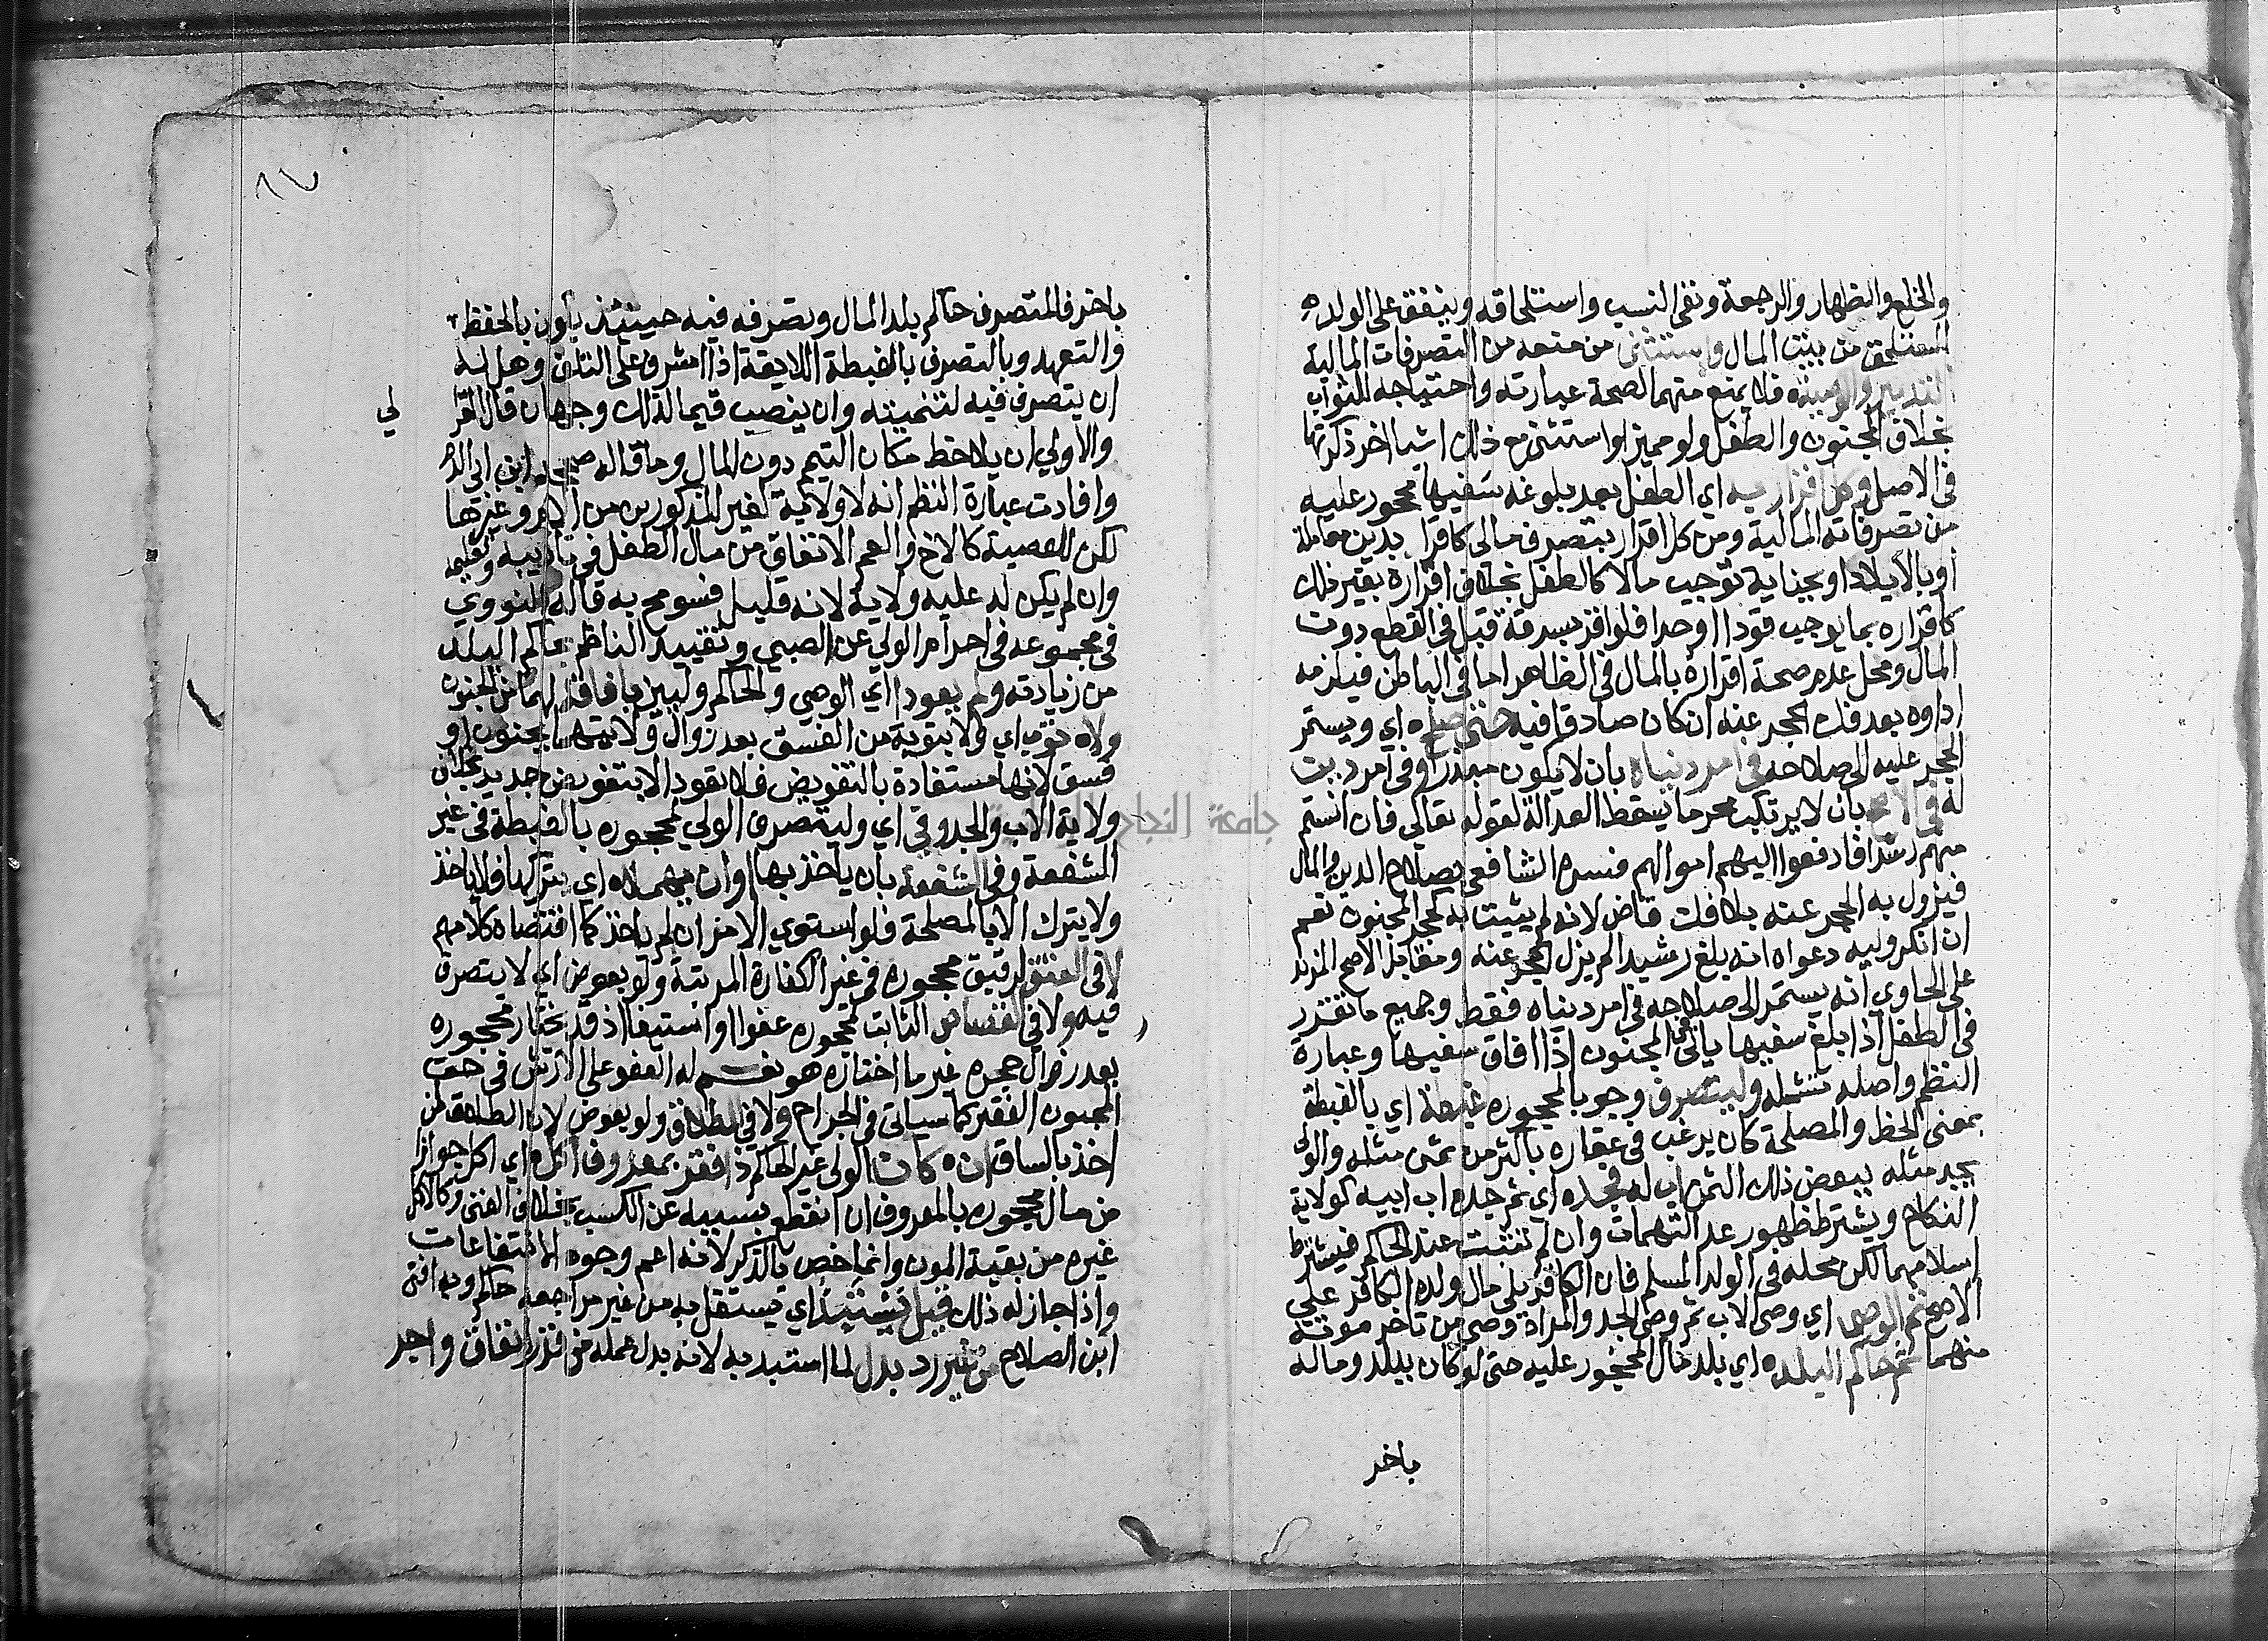 والخلع والظهار والرجعة ونفى النسب واستلحاقه وينفق على الولده
المستلحق من بيت المال ويستثنى من منعه من التصرفات المالية
التدبير والوصية فلا يمنع منهما لصحة عبارته واحتياجه للثواب
بخلاف المجنون والطفل ولو مميزا واستثنى مع ذلك اشيا اخر ذكرتها
فى الاصل اي الطفل بعد بلوغه سفيها محجور عليه
من تصرفاته المالية ومن كل اقرار بتصرف مالى كاقرار بدين معاملة
أو بالايلاد او بجناية توجب مالا كالطفل بخلاف اقراره بغير ذلك
كاقراره بما يوجب قودا او حدا فلو اقر بسرقة قبل فى القطع دون
المال ومحل عدم صحة اقراره بالمال فى الظاهر اما فى الباطن فيلزمه
اداوه بعد فك الحجر عنه ان كان صادقا فيه حتى صلاحه اي ويستمر
الحجر عليه الى صلاحه فى امر دنياه بان لا يكون مبذرا وفى امر دين
له فى الاصح بان لا يرتكب محرما يسقط العدالة لقوله تعالى فان انستم
منهم رشدا فادفعوا اليهم اموالهم فسره الشافعى بصلاح الدين والمال
فيزول به الحجر عنه بلا فك قاض لانه لم يثبت به كحجر المجنون نعم
ان انكر وليه دعواه انه بلغ رشيدا لم يزل الحجر عنه ومقابل الاصح المزيد
على الحاوي انه يستمر الى صلاحه فى امر دنياه فقط وجميع ما تقرر
فى الطفل اذا بلغ سفيها ياتى فى المجنون اذا افاق سفيها وعبارة
النظم واصله تشمله وليتصرف وجوبا لمحجوره غبطة اي بالغبطة
بمعنى الحظ والمصلحة كان يرغب فى عقاره باكثر من ثمن مثله والولى
يجد مثله ببعض ذلك الثمن اب له فجده اي ثم جده اب ابيه كولاية
النكاح ويشترط ظهور عدالتهما وان لم تثبت عند الحاكم فيشترط
اسلامهما لكن محله فى الولد المسلم فان الكافر يلى مال ولده الكافر على
الاصح ثم الوصي اي وصى الاب ثم وصى الجد والمراد وصى من تاخر موته
منهما ثم حاكم البلده اي بلد مال المحجور عليه حتى لو كان ببلد وماله
باخر
باخر فالمتصرف حاكم بلد المال وتصرفه فيه حينئذ يكون بالحفظ
والتعهد وبالتصرف بالغبطة اللايقة اذا اشرف على التلف وهل له
ان يتصرف فيه لتنميته وان ينصب قيما لذلك وجهان قال الغزا
لي
والاولى ان يلاحظ مكان اليتيم دون المال وما قاله صححه ابن ابى الدم
وافادت عبارة النظم انه لا ولاية لغير المذكورين من الام وغيرها
لكن للعصبة كالاخ والعم الانفاق من مال الطفل فى تاديبه وتعليمه
وان لم يكن له عليه ولاية لانه قليل فسومح به قاله النووي
فى مجموعه فى احرام الولى عن الصبي وتقييد الناظم بحاكم البلد
من زيادته ولم يعودا اي الوصي والحاكم وليين بافاقة لهما من الجنون
ولاه توب اي ولا بتوبة من الفسق بعد زوال ولايتهما بجنون او
فسق لانها مستفادة بالتفويض فلا تعود الا بتفويض جديد بخلاف
ولاية الاب والجد وفى اي وليتصرف الولى لمحجوره بالغبطة فى غير
الشفعة وفى الشفعة بان ياخذ بها وان يهملاه اي يتركها فلا ياخذ
ولا يترك الا بالمصلحة فلو استوي الامران لم ياخذ كما اقتضاه كلامهم
لا فى العتق لرقيق محجوره فى غير الكفارة المرتبة ولو بعوض اي لا يتصرف
فيه ولا فى القصاص الثابت لمحجوره عفوا او استيفا اذ قد يختار محجوره
بعد زوال حجره غير ما اختاره هو نعم له العفو على الارش فى حق
المجنون الفقير كما سياتى فى الجراح ولا فى الطلاق ولو بعوض لان الطلاق لمن
اخذ بالساق ان كان الولى غير الحاكم ذا فقر بمعروف اكل اي اكل جوازا
من مال محجوره بالمعروف ان انقطع بسببه عن الكسب بخلاف الغنى وكالاكل
غيره من بقية المون وانما خص بالذكر لانه اعم وجوه الانتفاعات
واذا جاز له ذلك قيل يستبد اي يستقل به من غير مراجعة حاكم وبه افتى
ابن الصلاح من غير رد بدل لما استبد به لانه بدل عمله من قدر انفاق واجر
٨٧